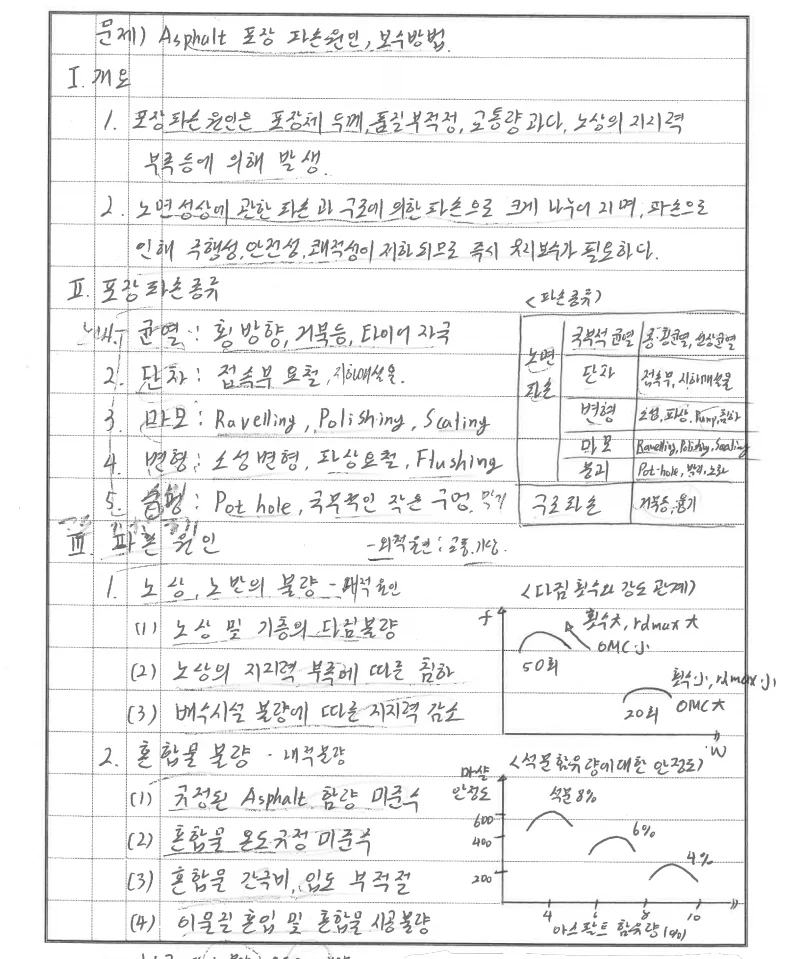 문제) Asphalt 포장 파손원인, 보수방법.
I. 개요
1. 포장파손 원인은 포장체 두께, 품질부적정, 교통량 과다, 노상의 지지력
부족등에 의해 발생.
2. 노면성상에 관한 파손과 구조에 의한 파손으로 크게 나누어 지며, 파손으로
인해 주행성, 안전성, 쾌적성이 저하되므로 즉시 유지보수가 필요하다.
II. 포장파손종류
1. 균열 : 횡방향, 거북등, 타이어 자국
2. 단차 : 접속부 요철, 지하매설물.
3. 마모 : Ravelling, Polishing, Scaling
4. 변형 : 소성변형, 파상요철, Flushing
5. : Pot hole, 국부적인 작은 구멍,
<파손종류>
노면 파손
국부적 균열 종·횡균열, 선상균열
단차 접속부, 지하매설물
변형 소성, 파상, Pump, 침하
마모 Ravelling, Polishing, Scaling
붕괴 Pot-hole, 박리, 노화
구조파손 거북등, 융기
III. 파손원인
- 외적요인 : 교통, 기상.
1. 노상, 노반의 불량 - 내적요인
(1) 노상 및 기층의 다짐불량
(2) 노상의 지지력 부족에 따른 침하
(3) 배수시설 불량에 따른 지지력 감소
<다짐횟수와 강도 관계>
f
횟수大, rdmax 大
OMC 小
50회
횟수小, rdmax 小
OMC 大
20회
W
2. 혼합물 불량 - 내적불량
(1) 규정된 Asphalt 함량 미준수
(2) 혼합물 온도규정 미준수
(3) 혼합물 간극비, 입도 부적절
(4) 이물질 혼입 및 혼합물 시공불량
<석분함유량에 대한 안정도>
마샬
안정도
석분 8%
600
6%
400
4%
200
4 6 8 10
아스팔트 함유량 (%)